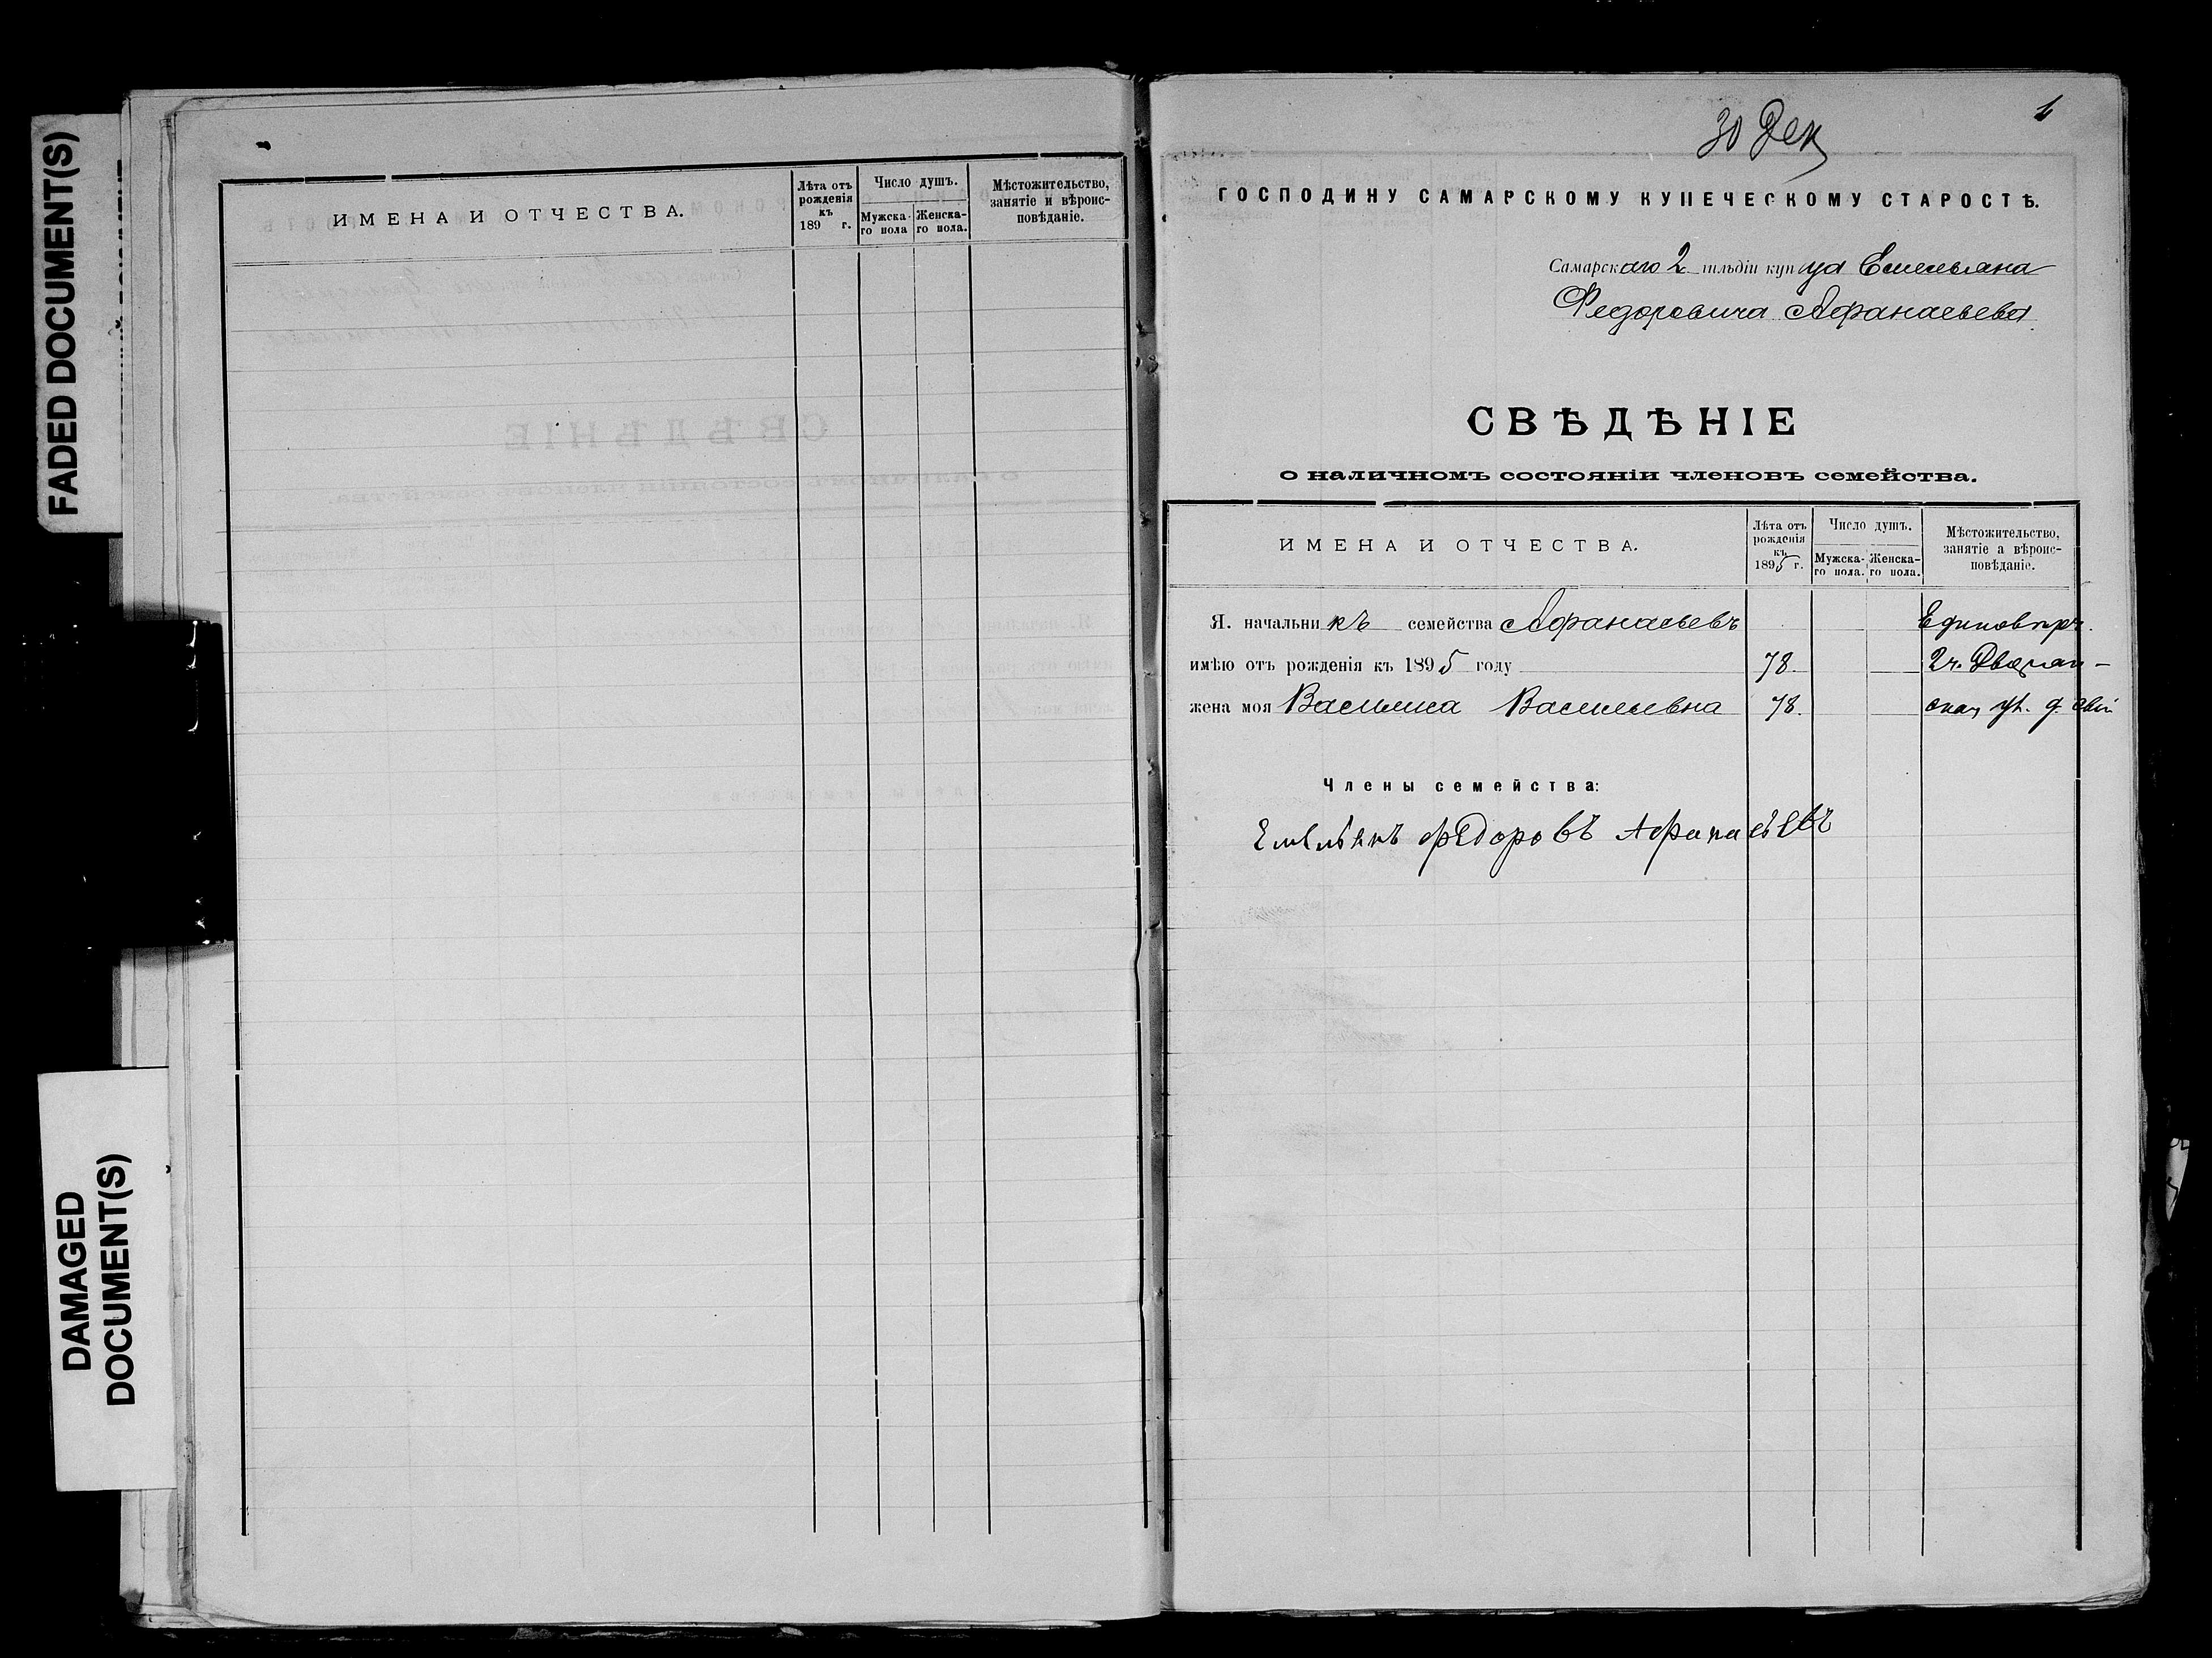 FADED DOCUMENT(S)
DAMAGED
DOCUMENT(S)
ИМЕНА И ОТЧЕСТВА.
Лѣта отъ
рожденія
къ
189 г.
Число душъ.
Мужска-
го пола
Женска-
го пола.
Мѣстожительство,
занятіе и вѣроис-
повѣданіе.
30 Дек
1
ГОСПОДИНУ САМАРСКОМУ КУПЕЧЕСКОМУ СТАРОСТѢ.
Самарскаго 2 гильдіи купца Емельяна
Федоровича Афанасьева
СВѢДѢНІЕ
о наличномъ состояніи членовъ семейства.
ИМЕНА И ОТЧЕСТВА.
Лѣта отъ
рожденія
къ
1895 г.
Число душъ.
Мужска-
го пола.
Женска-
го пола.
Мѣстожительство,
занятіе а вѣроис-
повѣданіе.
Я. начальникъ семейства Афанасьевъ Единовѣрч.
имѣю отъ рожденія къ 1895 году 78 2ч. Дворян-
жена моя Василиса Васильевна 78. ская ул. д. свой
Члены семейства:
Емельянъ Федоровъ Афанасьевъ